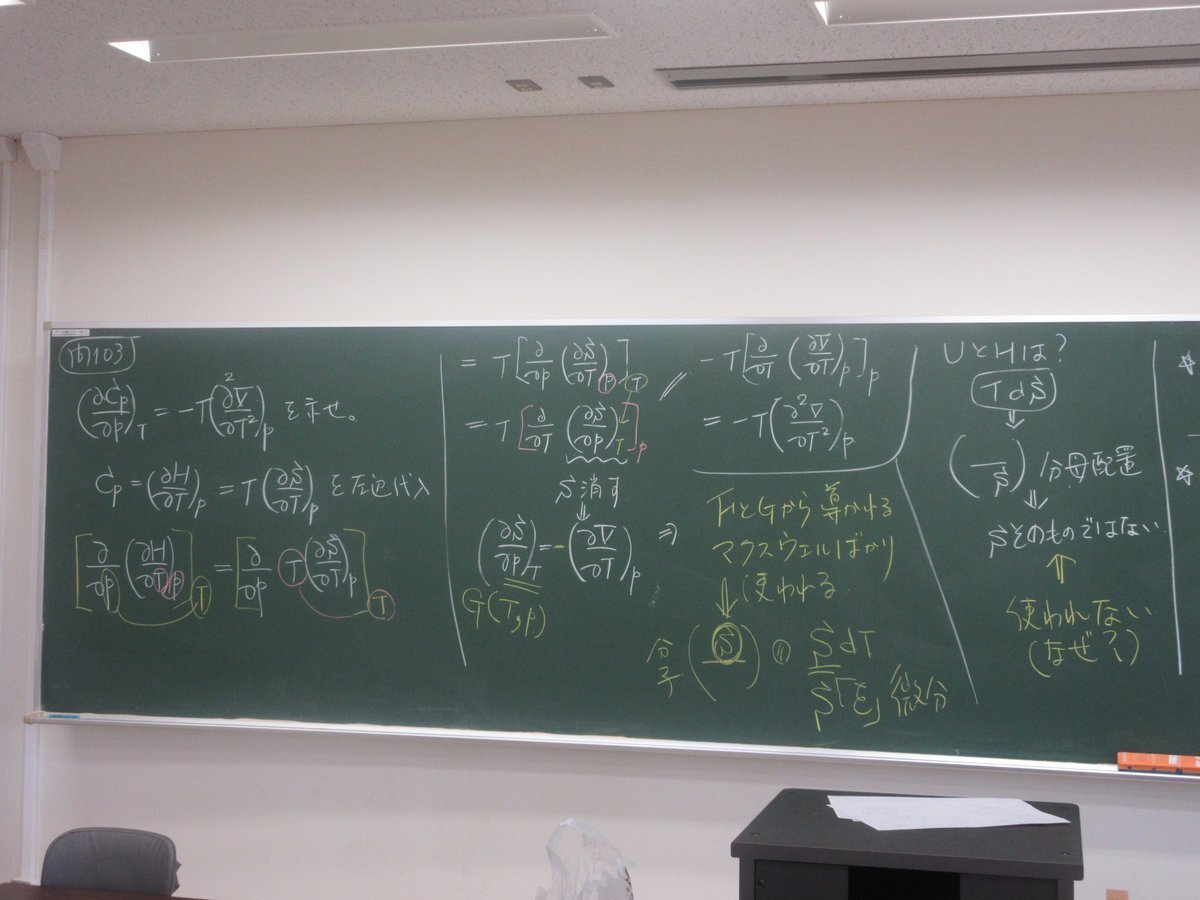 問103
(∂Cp/∂p)_T = -T(∂²V/∂T²)_p を示せ。
Cp = (∂H/∂T)_p = T(∂S/∂T)_p を左辺代入
[∂/∂p (∂H/∂T)_p]_T = [∂/∂p T(∂S/∂T)_p]_T
= T[∂/∂p (∂S/∂T)_p]_T
= T[∂/∂T (∂S/∂p)_T]_p
S消す
⇓
(∂S/∂p)_T = -(∂V/∂T)_p ⇒
G(T,p)
-T[∂/∂T (∂V/∂T)_p]_p
= -T(∂²V/∂T²)_p
FとGから導かれる
マクスウェルばかり
⇓ 使われる
分子 (S/ )
SdT
S「を」微分
UとHは?
TdS
⇓
( /S) 分母配置
⇓
Sそのものではない
⇑
使われない
(なぜ?)
☆
☆